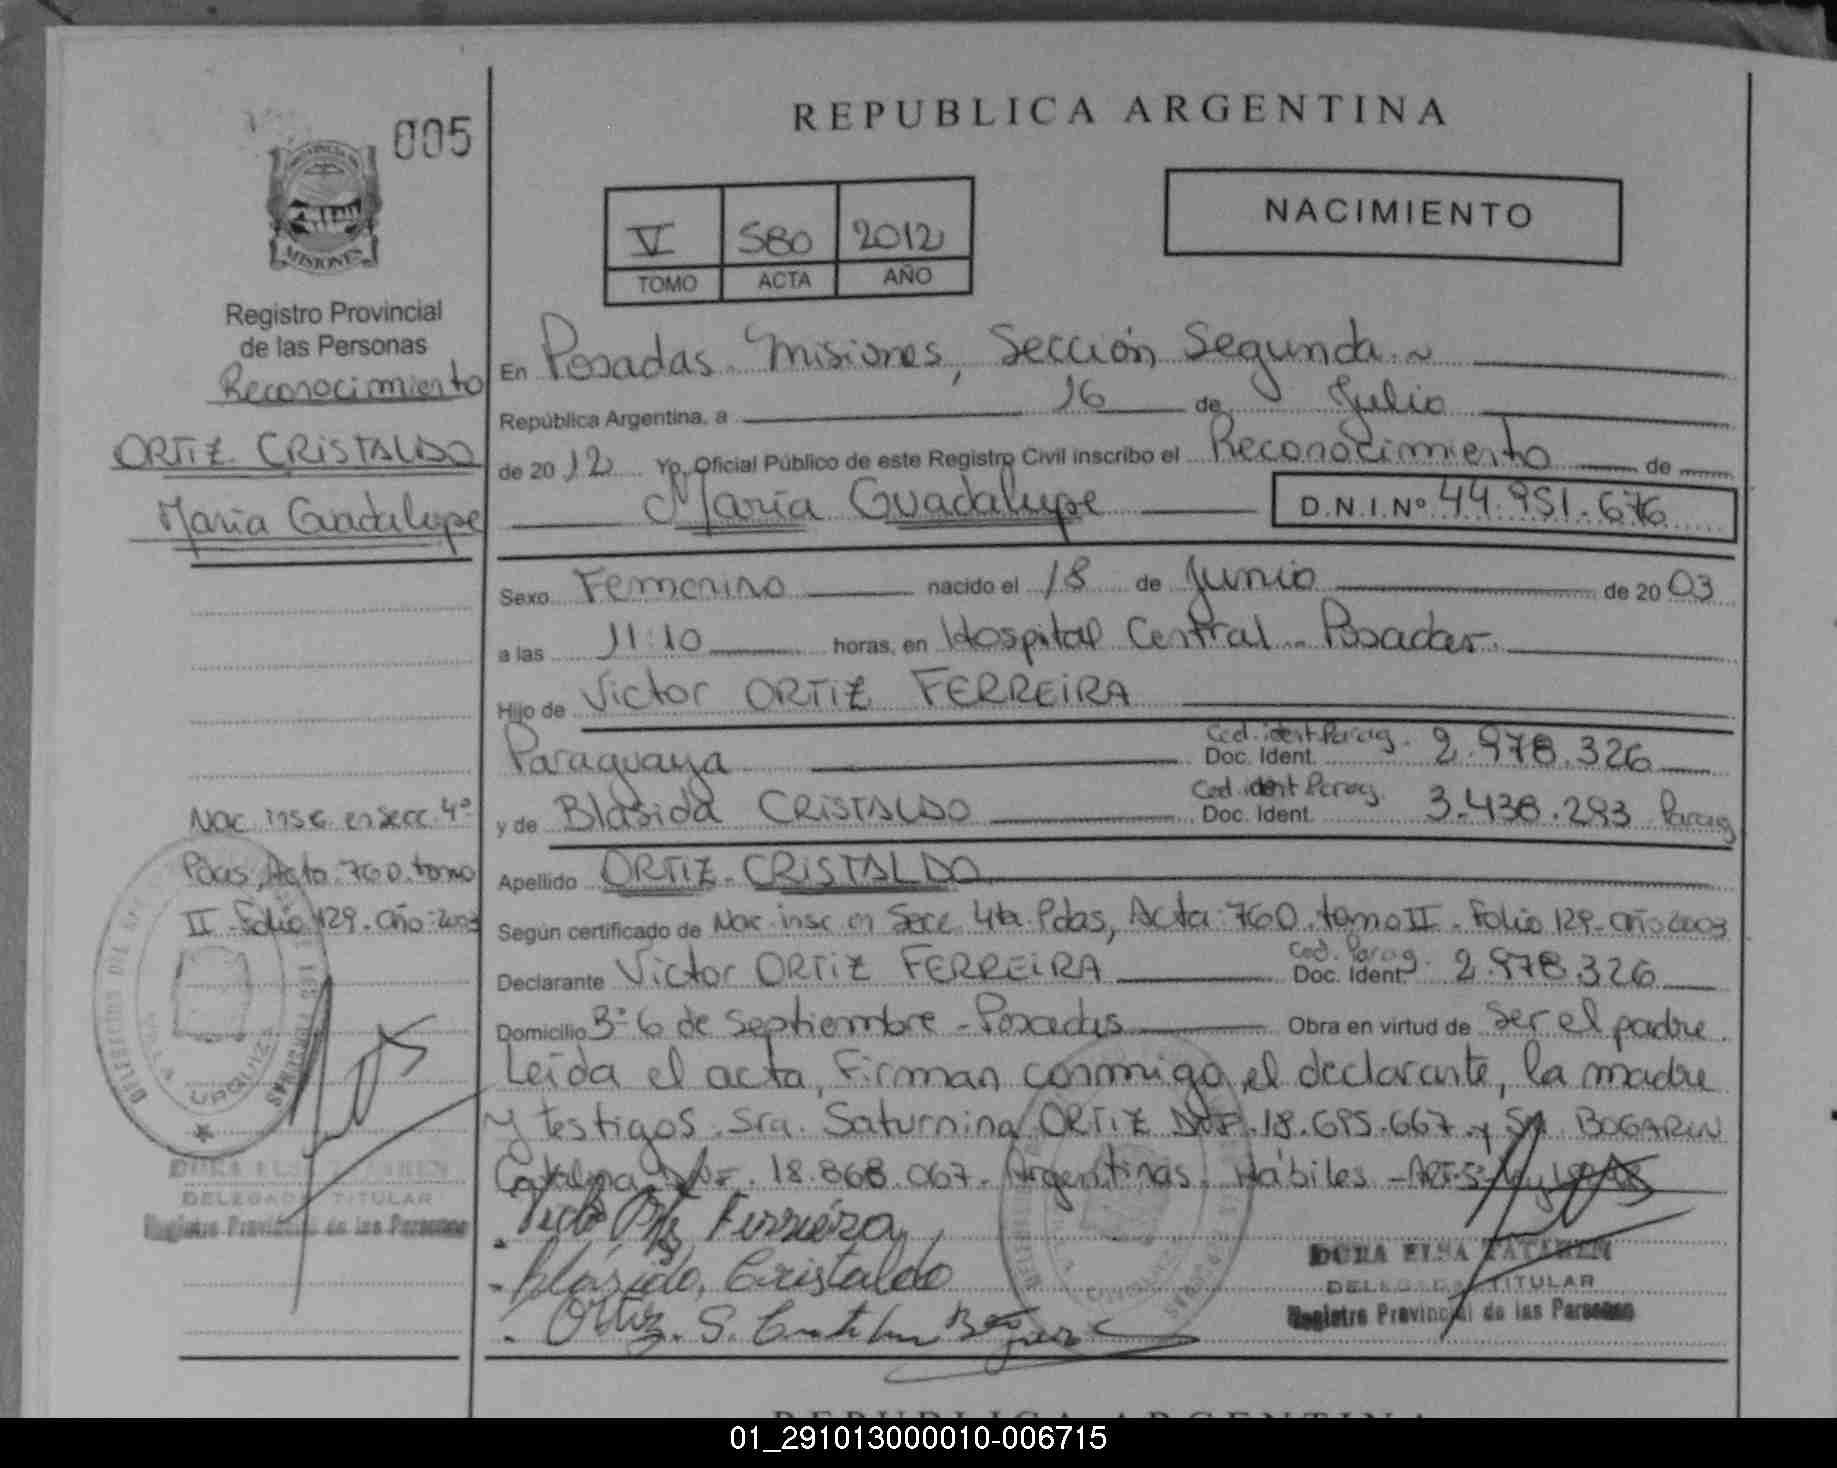 005
MISIONES
Registro Provincial
de las Personas
Reconocimiento
ORTIZ CRISTALDO
María Guadalupe
Nac. insc. en Secc. 4º
Pdas, Acta 760. tomo
II - Folio 129. Año: 2003
DELEGADA TITULAR
Registro Provincial de las Personas
REPUBLICA ARGENTINA
V 580 2012
TOMO ACTA AÑO
NACIMIENTO
En Posadas. Misiones, Sección Segunda. ~
República Argentina, a 16 de Julio
de 2012 Yo, Oficial Público de este Registro Civil inscribo el Reconocimiento de
María Guadalupe D.N.I.Nº 44.951.676
Sexo Femenino nacido el 18 de Junio de 2003
a las 11:10 horas, en Hospital Central - Posadas.
Hijo de Victor ORTIZ FERREIRA
Paraguaya Ced. ident Parag. Doc. Ident. 2.978.326
y de Blasida CRISTALDO Ced. ident Parag. Doc. Ident. 3.438.293 Parag
Apellido ORTIZ - CRISTALDO
Según certificado de Nac. insc en Secc 4ta Pdas, Acta: 760. tomo II - Folio 129 - Año 2003
Declarante Victor ORTIZ FERREIRA Ced. Parag. Doc. Ident. 2.978.326
Domicilio Bº 6 de Septiembre - Posadas Obra en virtud de ser el padre.
Leída el acta, Firman conmigo, el declarante, la madre
y testigos. Sra. Saturnina ORTIZ DNI. 18.695.667. y Sra. BOGARIN
Catalina. DNI. 18.868.067. Argentinas. Hábiles -
Victor Ortiz Ferreira
- Blásida, Cristaldo
Ortiz. S.
DORA ELSA TATAREN
DELEGADA TITULAR
Registro Provincial de las Personas
REPUBLICA ARGENTINA
01_291013000010-006715